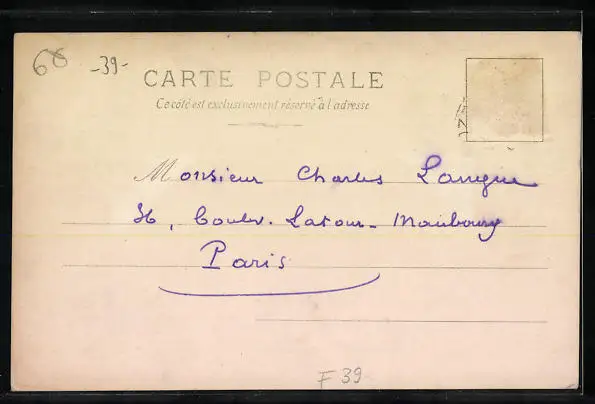 68 -39-
CARTE POSTALE
Ce côté est exclusivement réservé à l'adresse
Monsieur Charles
36, Boulev. Latour-Maubourg
Paris
F 39